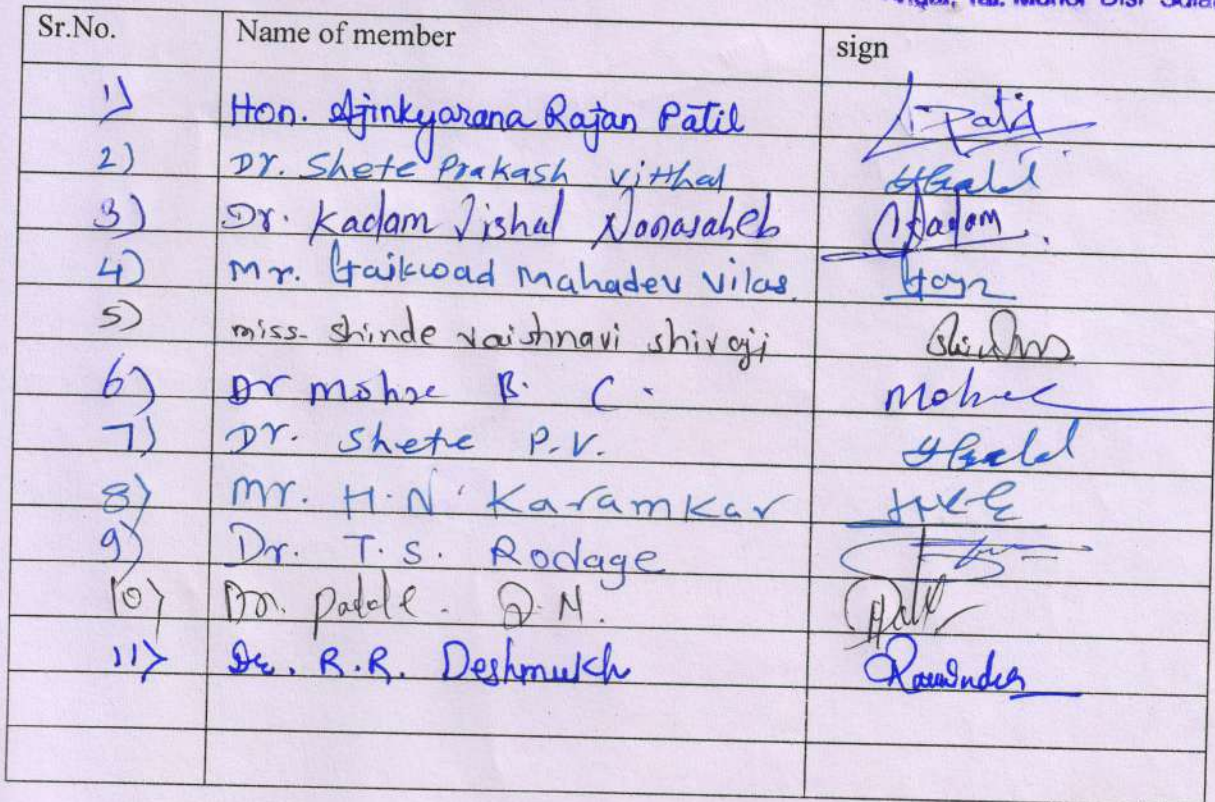 Tal. Mohol Dist
Sr.No. Name of member sign
1) Hon. Ajinkyarana Rajan Patil Patil
2) Dr. Shete Prakash Vitthal
3) Dr. Kadam Vishal Nanasaheb Kadam
4) Mr. Gaikwad Mahadev Vilas
5) miss. Shinde Vaishnavi Shivaji
6) Dr Mohre B. C. Mohre
7) Dr. Shete P.V.
8) Mr. H.N. Karamkar
9) Dr. T.S. Rodage
10) Dr. D.M.
11) Dr. R.R. Deshmukh